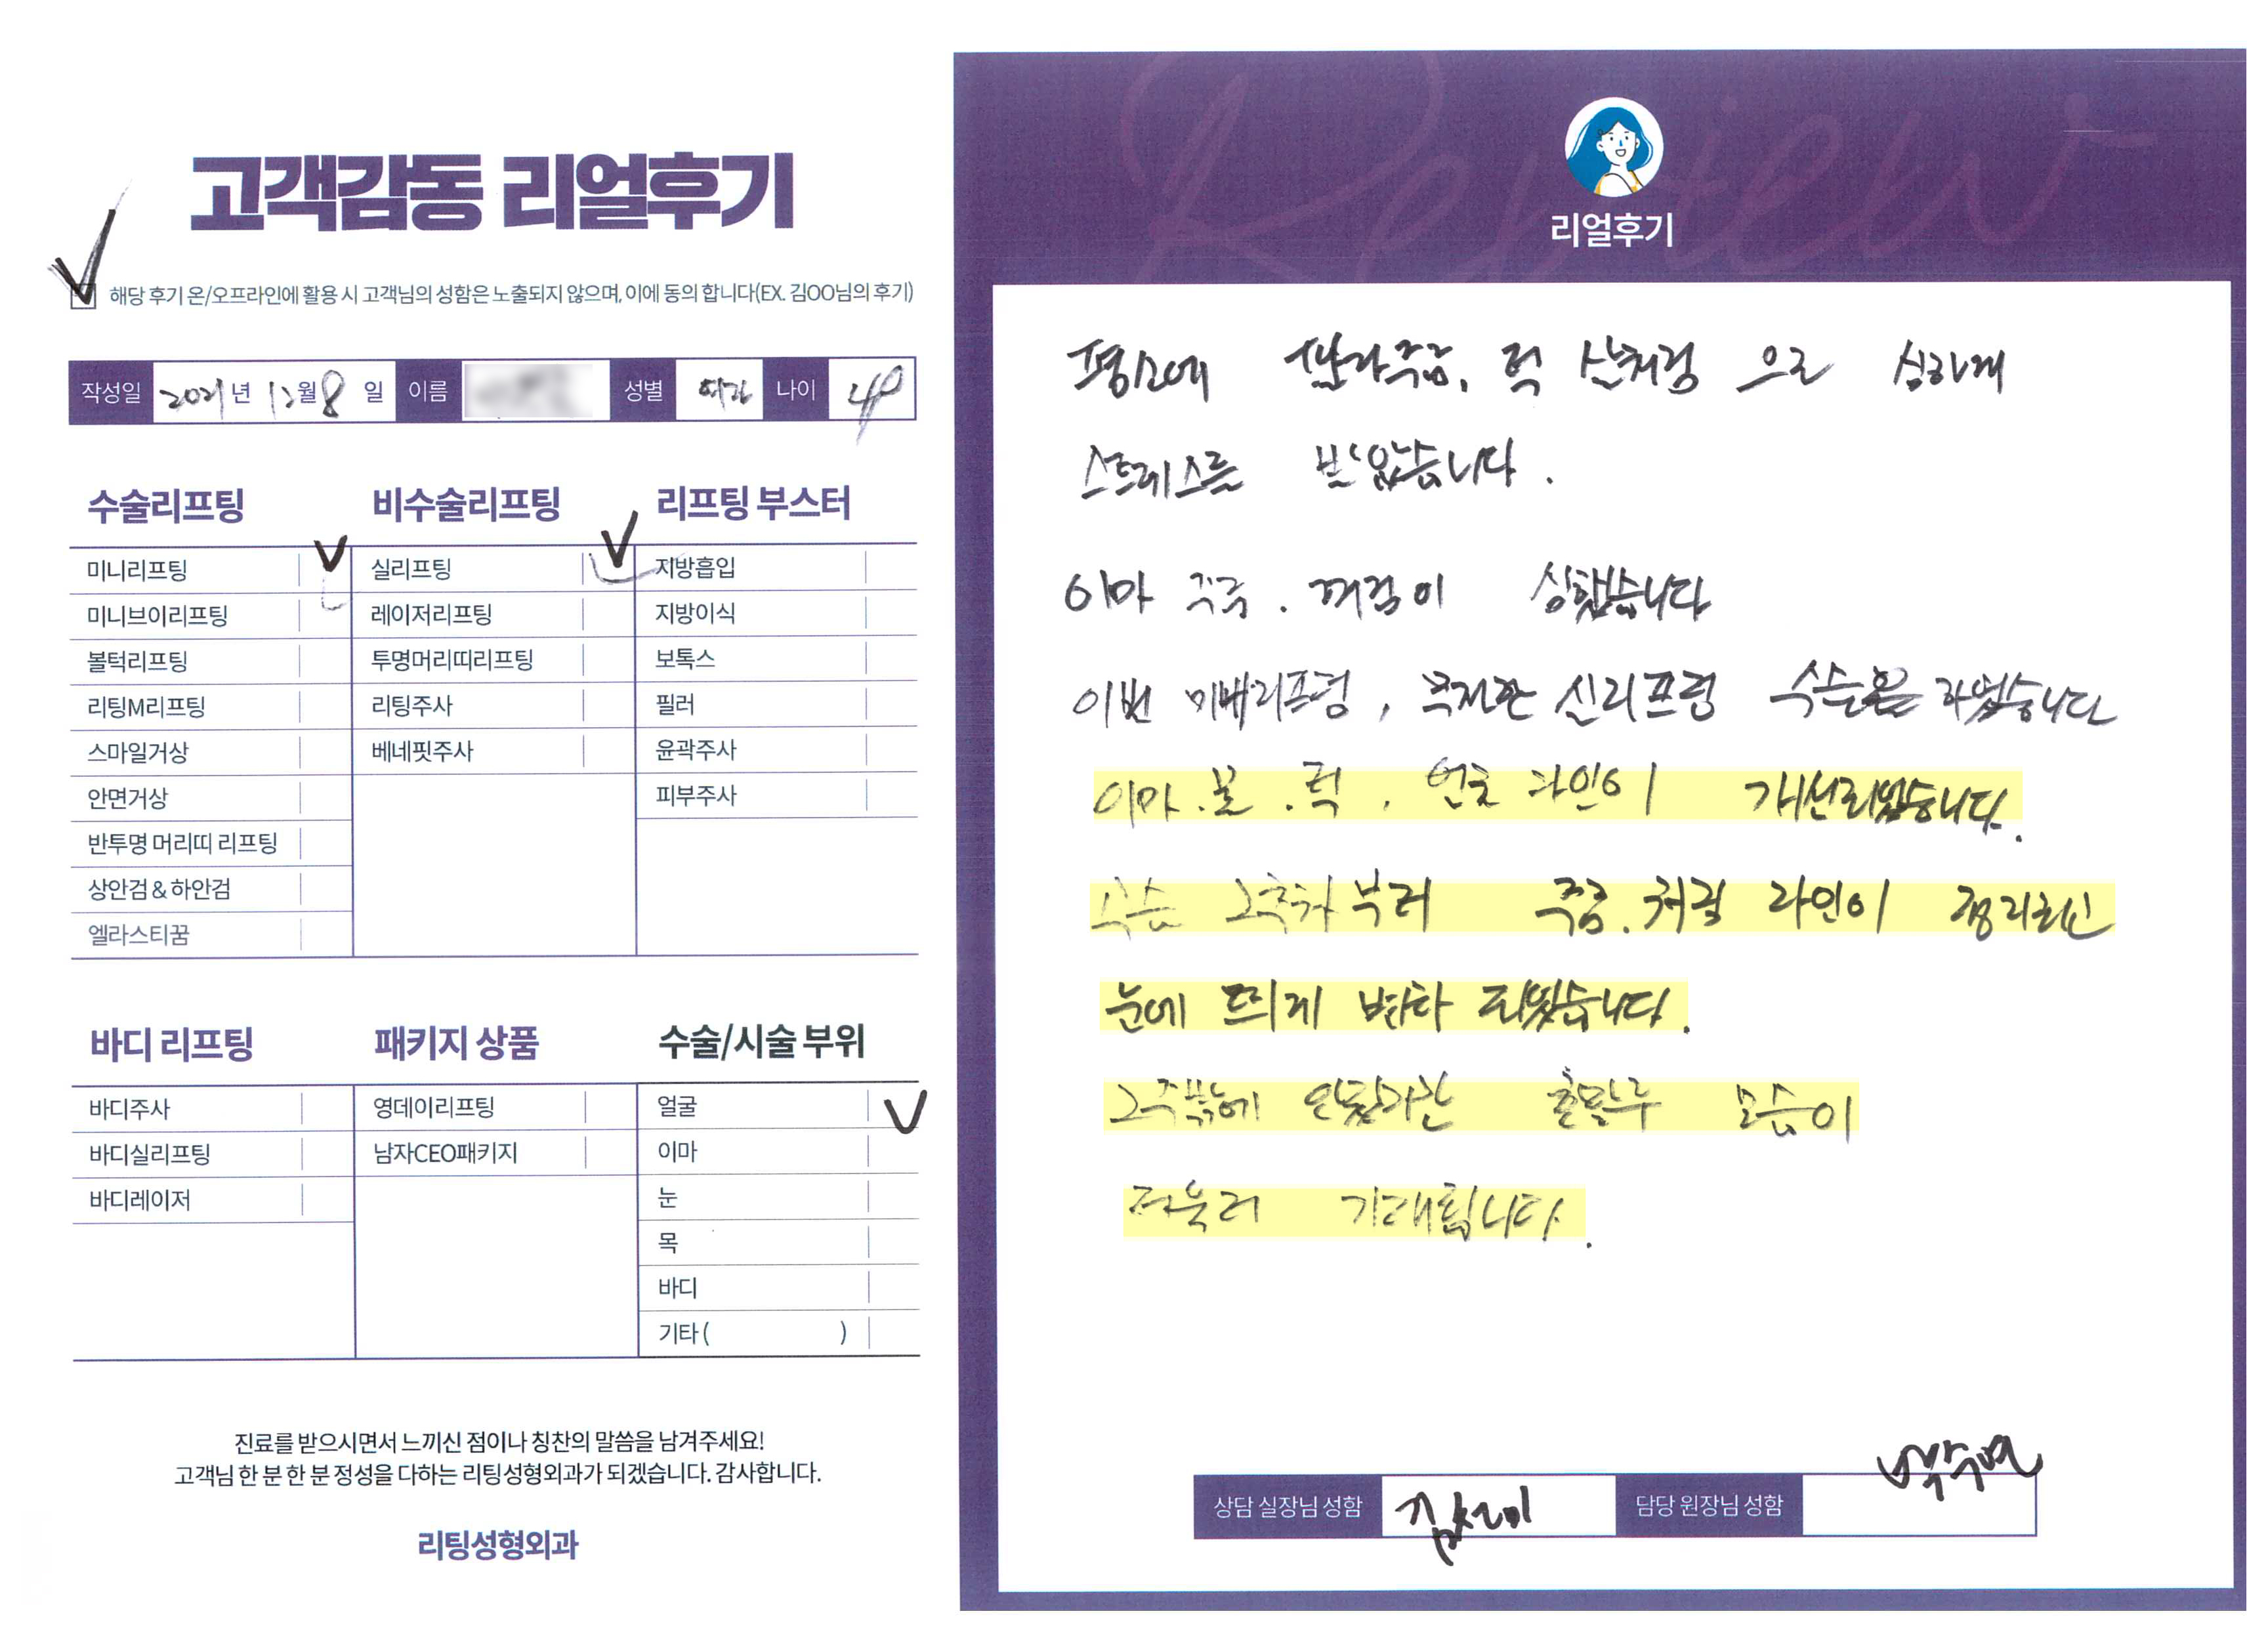 Review
리얼후기
고객감동 리얼후기
해당 후기 온/오프라인에 활용 시 고객님의 성함은 노출되지 않으며, 이에 동의 합니다(EX. 김OO님의 후기)
작성일 2021년 12월 8일 이름 성별 여자 나이
수술리프팅
미니리프팅
미니브이리프팅
볼턱리프팅
리팅M리프팅
스마일거상
안면거상
반투명 머리띠 리프팅
상안검 & 하안검
엘라스티꿈
비수술리프팅
실리프팅
레이저리프팅
투명머리띠리프팅
리팅주사
베네핏주사
리프팅 부스터
지방흡입
지방이식
보톡스
필러
윤곽주사
피부주사
바디 리프팅
바디주사
바디실리프팅
바디레이저
패키지 상품
영데이리프팅
남자CEO패키지
수술/시술 부위
얼굴
이마
눈
목
바디
기타 ( )
진료를 받으시면서 느끼신 점이나 칭찬의 말씀을 남겨주세요!
고객님 한 분 한 분 정성을 다하는 리팅성형외과가 되겠습니다. 감사합니다.
리팅성형외과
평소에 팔자주름, 턱 살처짐 으로 심하게
스트레스를 받았습니다.
이마 꺼짐이 심했습니다
이번 리프팅, 실리프팅 수술을 하였습니다
이마. 볼. 턱. 얼굴 라인이 개선되었습니다.
수술 부터 주름. 처짐 라인이 정리되신
눈에 띄게 변화 되었습니다.
모습이
더욱더 기대됩니다.
상담 실장님 성함 담당 원장님 성함